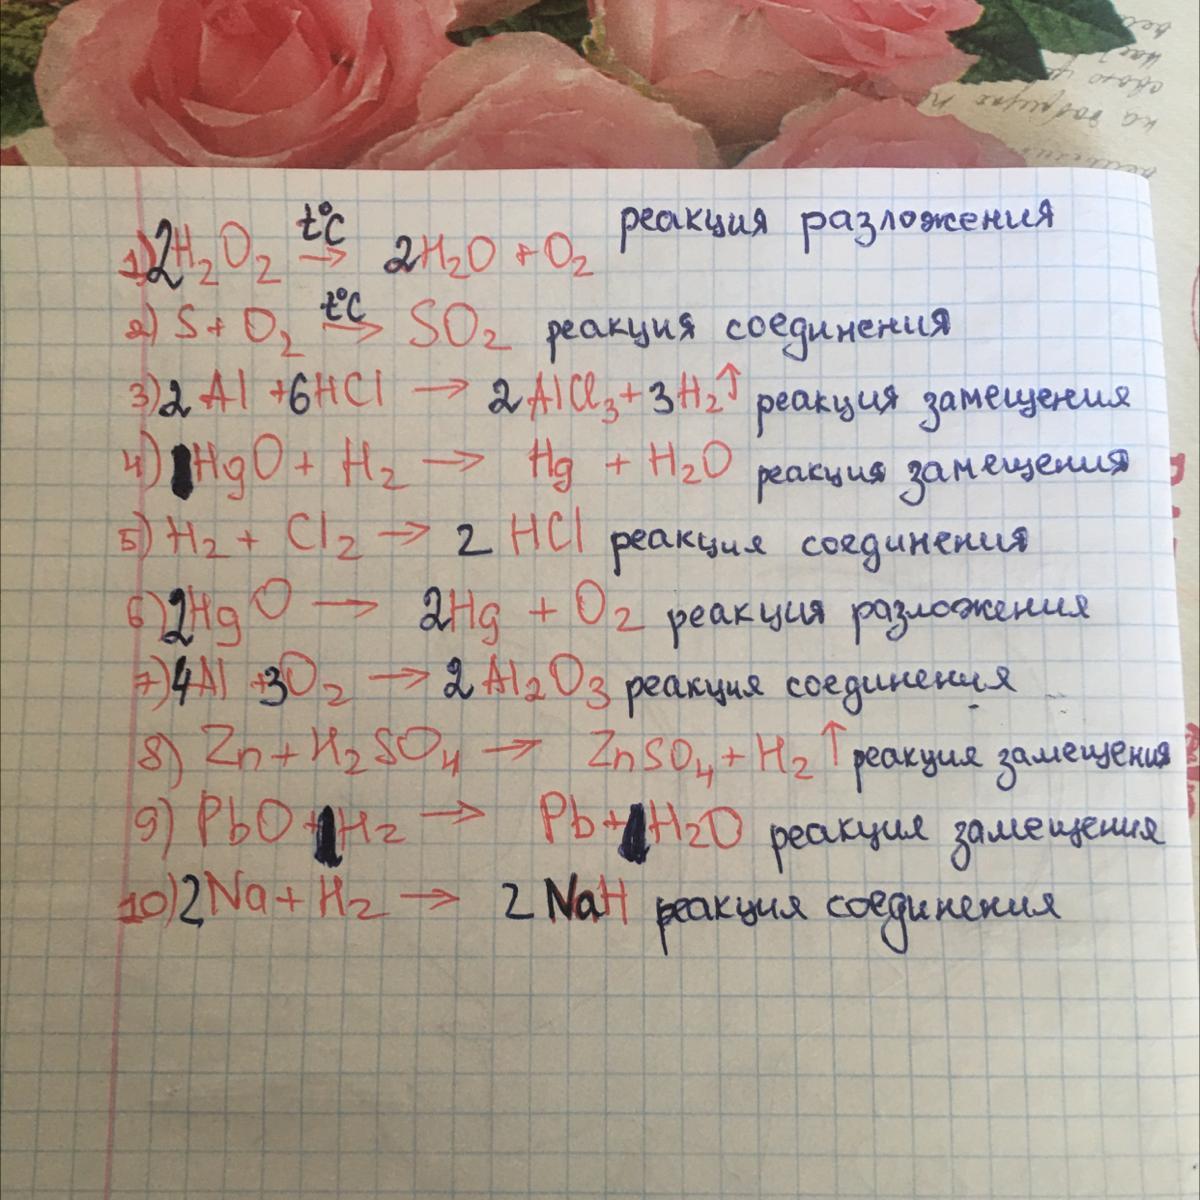 1) 2H₂O₂ t°C → 2H₂O + O₂ реакция разложения
2) S + O₂ t°C → SO₂ реакция соединения
3) 2Al + 6HCl → 2AlCl₃ + 3H₂↑ реакция замещения
4) HgO + H₂ → Hg + H₂O реакция замещения
5) H₂ + Cl₂ → 2HCl реакция соединения
6) 2HgO → 2Hg + O₂ реакция разложения
7) 4Al + 3O₂ → 2Al₂O₃ реакция соединения
8) Zn + H₂SO₄ → ZnSO₄ + H₂↑ реакция замещения
9) PbO + H₂ → Pb + H₂O реакция замещения
10) 2Na + H₂ → 2NaH реакция соединения